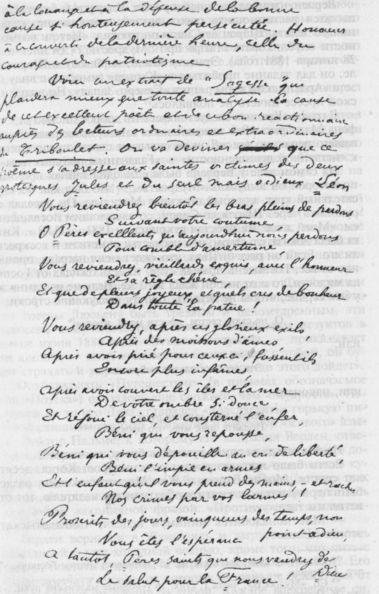 à la louange et à la défense de la bonne
cause si honteusement persécutée. Honneur
à ce converti de la dernière heure, celle du
courage et du patriotisme.
Voici un extrait de "Sagesse" qui
plaidera mieux que toute analyse la cause
de cet excellent poète et de ce bon réactionnaire
auprès des lecteurs ordinaires et extraordinaires
du Triboulet. On va deviner que ce
poème s'adresse aux saintes victimes des deux
grotesques Jules et du seul mais odieux Léon
Vous reviendrez bientôt les bras pleins de pardons
Suivant votre coutume
O Pères excellents qu'aujourd'hui nous perdons
Pour comble d'amertume
Vous reviendrez, vieillards exquis, avec l'honneur
Et sa règle chérie
Et que de pleurs joyeux et quels cris de bonheur
Dans toute la patrie!
Vous reviendrez, après ces glorieux exils
Après des moissons d'âmes
Après avoir prié pour ceux-ci, fussent-ils
Encore plus infâmes
Après avoir couvert les îles et la mer
De votre ombre si douce
Et réjoui le ciel, et consterné l'enfer,
Béni qui vous repousse,
Béni qui vous dépouille au cri de liberté
Béni l'impie en armes
Et l'enfant qu'il vous prend des bras - et
Nos crimes par vos larmes!
Proscrits des jours, vainqueurs des temps, non
point adieu,
Vous êtes l'espérance
A tantôt, Pères saints qui nous vaudrez de
Dieu
Le salut pour la France!